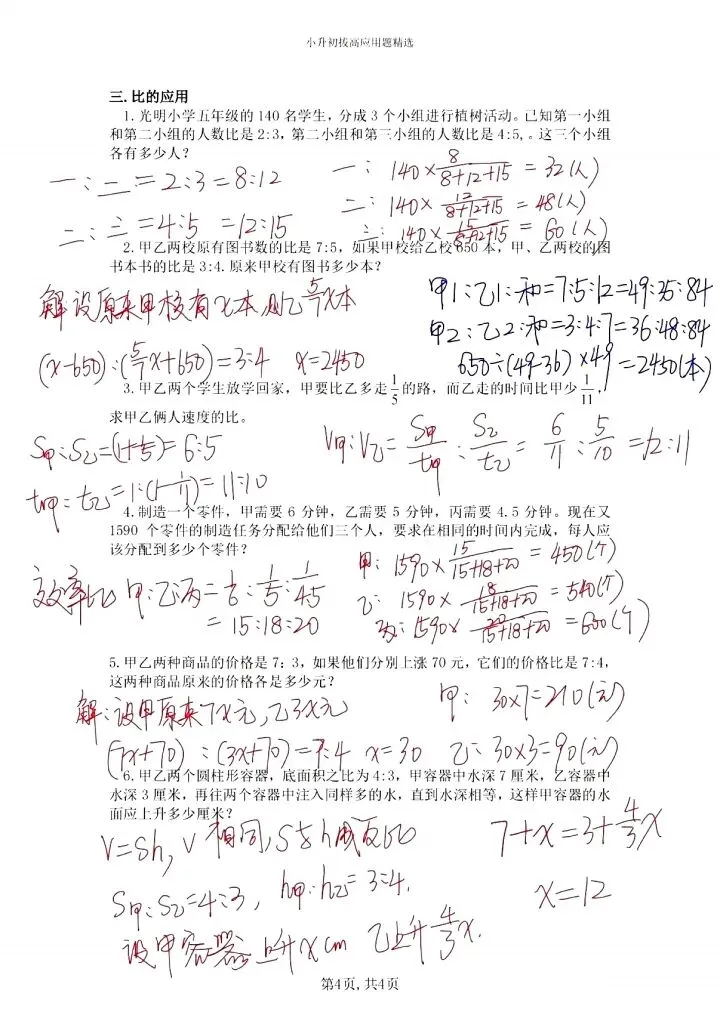 小升初拔高应用题精选
三.比的应用
1.光明小学五年级的 140 名学生，分成 3 个小组进行植树活动。已知第一小组
和第二小组的人数比是 2:3，第二小组和第三小组的人数比是 4:5,。这三个小组
各有多少人？
一:二=2:3=8:12
二:三=4:5=12:15
一: 140×8/(8+12+15)=32(人)
二: 140×12/(8+12+15)=48(人)
三: 140×15/(8+12+15)=60(人)
2.甲乙两校原有图书数的比是 7:5，如果甲校给乙校 650 本，甲、乙两校的图
书本书的比是 3:4.原来甲校有图书多少本？
解设原来甲校有x本,则乙5/7x本
(x-650):(5/7x+650)=3:4 x=2450
甲1:乙1:和=7:5:12=49:35:84
甲2:乙2:和=3:4:7=36:48:84
650÷(49-36)×49=2450(本)
3.甲乙两个学生放学回家，甲要比乙多走1/5的路，而乙走的时间比甲少1/11，
求甲乙俩人速度的比。
S甲:S乙=(1+1/5)=6:5
t甲:t乙=1:(1-1/11)=11:10
V甲:V乙=S甲/t甲:S乙/t乙=6/11:5/10=12:11
4.制造一个零件，甲需要 6 分钟，乙需要 5 分钟，丙需要 4.5 分钟。现在又
1590 个零件的制造任务分配给他们三个人，要求在相同的时间内完成，每人应
该分配到多少个零件？
效率比 甲:乙:丙=1/6:1/5:1/4.5
=15:18:20
甲: 1590×15/(15+18+20)=450(个)
乙: 1590×18/(15+18+20)=540(个)
丙: 1590×20/(15+18+20)=600(个)
5.甲乙两种商品的价格是 7：3，如果他们分别上涨 70 元，它们的价格比是 7:4，
这两种商品原来的价格各是多少元？
解:设甲原来7x元,乙3x元
(7x+70):(3x+70)=7:4 x=30
甲: 30×7=210(元)
乙: 30×3=90(元)
6.甲乙两个圆柱形容器，底面积之比为 4:3，甲容器中水深 7 厘米，乙容器中
水深 3 厘米，再往两个容器中注入同样多的水，直到水深相等，这样甲容器的水
面应上升多少厘米？
V=Sh, V相同,S与h成反比
S甲:S乙=4:3, h甲:h乙=3:4.
设甲容器上升xcm 乙上升4/3x.
7+x=3+4/3x
x=12
第4页,共4页